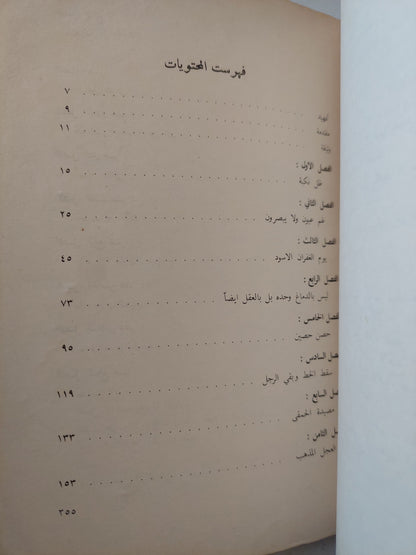 فهرست المحتويات
تمهيد . . . . . . . . . . ٧
مقدمة . . . . . . . . . . ٩
. . . . . . . . . . ١١
الفصل الاول :
ظل نكبة . . . . . . . . . . ١٥
الفصل الثاني :
لهم عيون ولا يبصرون . . . . . . . . . . ٢٥
الفصل الثالث :
يوم الغفران الاسود . . . . . . . . . . ٤٥
الفصل الرابع :
ليس بالدماغ وحده بل بالعقل ايضاً . . . . . . . . . . ٧٣
الفصل الخامس :
حصن حصين . . . . . . . . . . ٩٥
صل السادس :
سقط الخط وبقي الرجل . . . . . . . . . . ١١٩
صل السابع :
مصيدة الحمقى . . . . . . . . . . ١٣٣
ـل الثامن :
العجل المذهب . . . . . . . . . . ١٥٣
٢٥٥